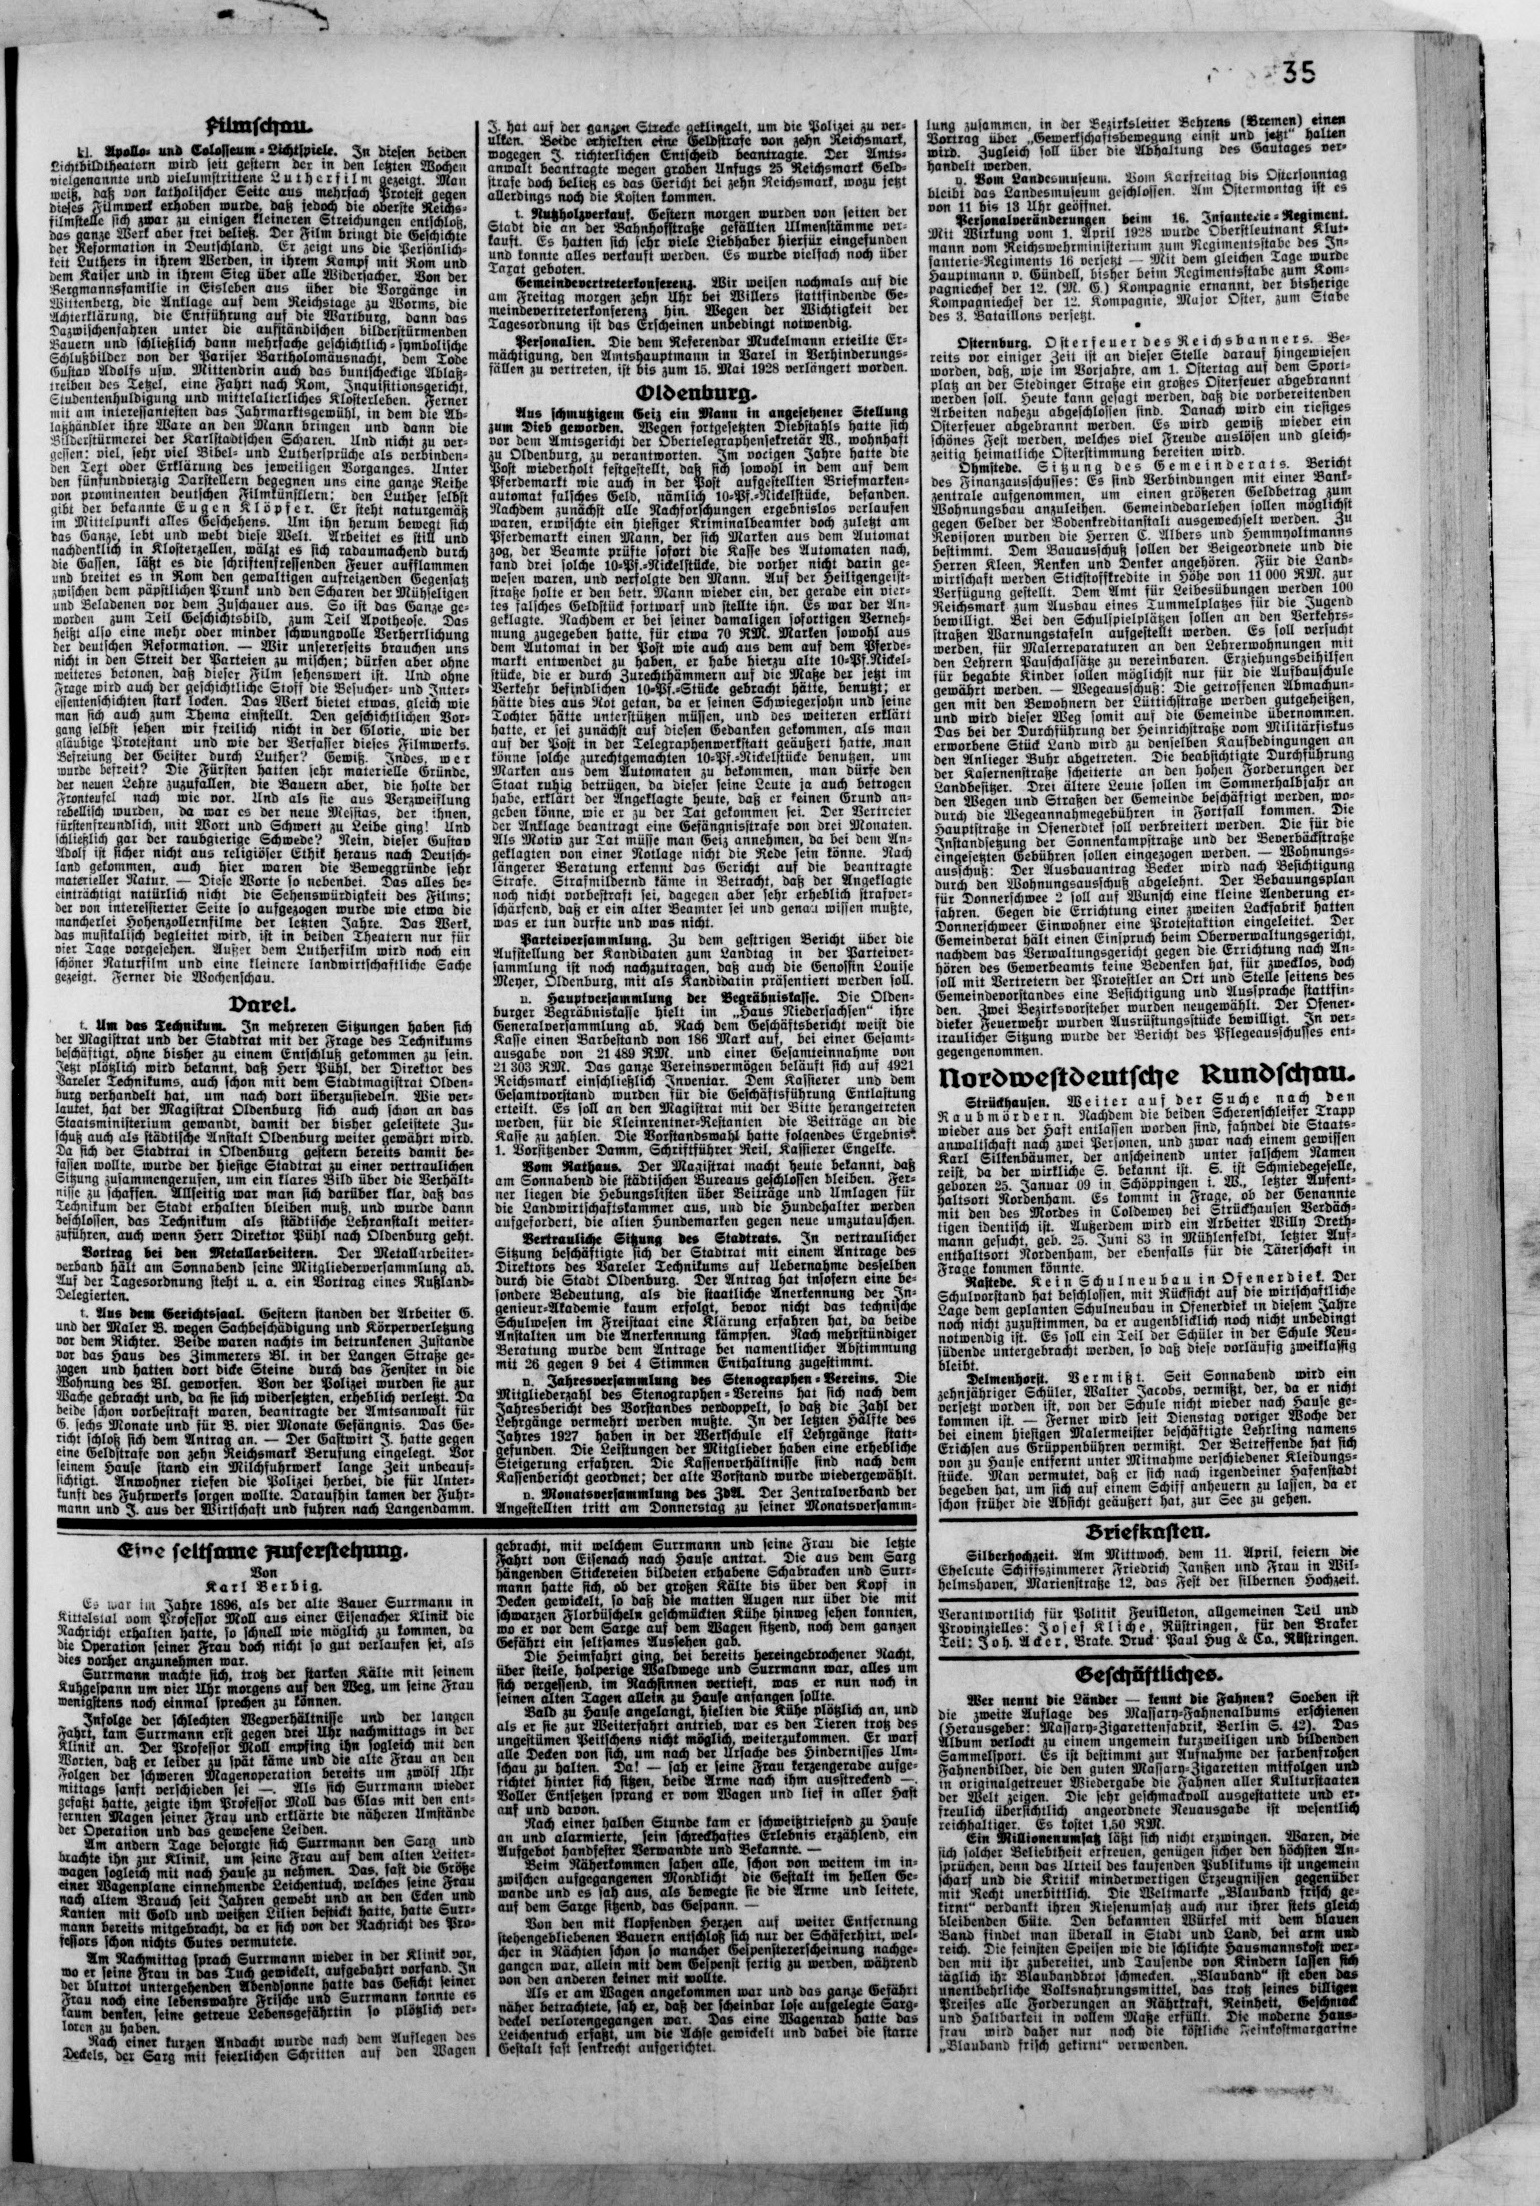 35
Filmschau.
kl. Apollo- und Colosseum-Lichtspiele. In diesen beiden
Lichtbildtheatern wird seit gestern der in den letzten Wochen
vielgenannte und vielumstrittene Lutherfilm gezeigt. Man
weiß, daß von katholischer Seite aus mehrfach Protest gegen
dieses Filmwerk erhoben wurde, daß jedoch die oberste Reichs-
filmstelle sich zwar zu einigen kleineren Streichungen entschloß,
das ganze Werk aber frei beließ. Der Film bringt die Geschichte
der Reformation in Deutschland. Er zeigt uns die Persönlich-
keit Luthers in ihrem Werden, in ihrem Kampf mit Rom und
dem Kaiser und in ihrem Sieg über alle Widersacher. Von der
Bergmannsfamilie in Eisleben aus über die Vorgänge in
Wittenberg, die Anklage auf dem Reichstage zu Worms, die
Achterklärung, die Entführung auf die Wartburg, dann das
Dazwischenfahren unter die aufständischen bilderstürmenden
Bauern und schließlich dann mehrfache geschichtlich-symbolische
Schlußbilder von der Pariser Bartholomäusnacht, dem Tode
Gustav Adolfs usw. Mittendrin auch das buntscheckige Ablaß-
treiben des Tetzel, eine Fahrt nach Rom, Inquisitionsgericht,
Studentenhuldigung und mittelalterliches Klosterleben. Ferner
mit am interessantesten das Jahrmarktsgewühl, in dem die Ab-
laßhändler ihre Ware an den Mann bringen und dann die
Bilderstürmerei der Karlstadtschen Scharen. Und nicht zu ver-
gessen: viel, sehr viel Bibel- und Luthersprüche als verbinden-
den Text oder Erklärung des jeweiligen Vorganges. Unter
den fünfundvierzig Darstellern begegnen uns eine ganze Reihe
von prominenten deutschen Filmkünstlern; den Luther selbst
gibt der bekannte Eugen Klöpfer. Er steht naturgemäß
im Mittelpunkt alles Geschehens. Um ihn herum bewegt sich
das Ganze, lebt und webt diese Welt. Arbeitet es still und
nachdenklich in Klosterzellen, wälzt es sich radaumachend durch
die Gassen, läßt es die schriftenfressenden Feuer aufflammen
und breitet es in Rom den gewaltigen aufreizenden Gegensatz
zwischen dem päpstlichen Prunk und den Scharen der Mühseligen
und Beladenen vor dem Zuschauer aus. So ist das Ganze ge-
worden zum Teil Geschichtsbild, zum Teil Apotheose. Das
heißt also eine mehr oder minder schwungvolle Verherrlichung
der deutschen Reformation. — Wir unsererseits brauchen uns
nicht in den Streit der Parteien zu mischen; dürfen aber ohne
weiteres betonen, daß dieser Film sehenswert ist. Und ohne
Frage wird auch der geschichtliche Stoff die Besucher- und Inter-
essentenschichten stark locken. Das Werk bietet etwas, gleich wie
man sich auch zum Thema einstellt. Den geschichtlichen Vor-
gang selbst sehen wir freilich nicht in der Glorie, wie der
gläubige Protestant und wie der Verfasser dieses Filmwerks.
Befreiung der Geister durch Luther? Gewiß. Indes, wer
wurde befreit? Die Fürsten hatten sehr materielle Gründe,
der neuen Lehre zuzufallen, die Bauern aber, die holte der
Fronteufel nach wie vor. Und als sie aus Verzweiflung
rebellisch wurden, da war es der neue Messias, der ihnen,
fürstenfreundlich, mit Wort und Schwert zu Leibe ging! Und
schließlich gar der raubgierige Schwede? Nein, dieser Gustav
Adolf ist sicher nicht aus religiöser Ethik heraus nach Deutsch-
land gekommen, auch hier waren die Beweggründe sehr
materieller Natur. — Diese Worte so nebenbei. Das alles be-
einträchtigt natürlich nicht die Sehenswürdigkeit des Films;
der von interessierter Seite so aufgezogen wurde wie etwa die
mancherlei Hohenzollernfilme der letzten Jahre. Das Werk,
das musikalisch begleitet wird, ist in beiden Theatern nur für
vier Tage vorgesehen. Außer dem Lutherfilm wird noch ein
schöner Naturfilm und eine kleinere landwirtschaftliche Sache
gezeigt. Ferner die Wochenschau.
Varel.
t. Um das Technikum. In mehreren Sitzungen haben sich
der Magistrat und der Stadtrat mit der Frage des Technikums
beschäftigt, ohne bisher zu einem Entschluß gekommen zu sein.
Jetzt plötzlich wird bekannt, daß Herr Pühl, der Direktor des
Vareler Technikums, auch schon mit dem Stadtmagistrat Olden-
burg verhandelt hat, um nach dort überzusiedeln. Wie ver-
lautet, hat der Magistrat Oldenburg sich auch schon an das
Staatsministerium gewandt, damit der bisher geleistete Zu-
schuß auch als städtische Anstalt Oldenburg weiter gewährt wird.
Da sich der Stadtrat in Oldenburg gestern bereits damit be-
fassen wollte, wurde der hiesige Stadtrat zu einer vertraulichen
Sitzung zusammengerufen, um ein klares Bild über die Verhält-
nisse zu schaffen. Allseitig war man sich darüber klar, daß das
Technikum der Stadt erhalten bleiben muß, und wurde dann
beschlossen, das Technikum als städtische Lehranstalt weiter-
zuführen, auch wenn Herr Direktor Pühl nach Oldenburg geht.
Vortrag bei den Metallarbeitern. Der Metallarbeiter-
verband hält am Sonnabend seine Mitgliederversammlung ab.
Auf der Tagesordnung steht u. a. ein Vortrag eines Rußland-
Delegierten.
t. Aus dem Gerichtssaal. Gestern standen der Arbeiter G.
und der Maler B. wegen Sachbeschädigung und Körperverletzung
vor dem Richter. Beide waren nachts im betrunkenen Zustande
vor das Haus des Zimmerers Bl. in der Langen Straße ge-
zogen und hatten dort dicke Steine durch das Fenster in die
Wohnung des Bl. geworfen. Von der Polizei wurden sie zur
Wache gebracht und, da sie sich widersetzten, erheblich verletzt. Da
beide schon vorbestraft waren, beantragte der Amtsanwalt für
G. sechs Monate und für B. vier Monate Gefängnis. Das Ge-
richt schloß sich dem Antrag an. — Der Gastwirt J. hatte gegen
eine Geldstrafe von zehn Reichsmark Berufung eingelegt. Vor
seinem Hause stand ein Milchfuhrwerk lange Zeit unbeauf-
sichtigt. Anwohner riefen die Polizei herbei, die für Unter-
kunft des Fuhrwerks sorgen wollte. Daraufhin kamen der Fuhr-
mann und J. aus der Wirtschaft und fuhren nach Langendamm.
J. hat auf der ganzen Strecke geklingelt, um die Polizei zu ver-
ulken. Beide erhielten eine Geldstrafe von zehn Reichsmark,
wogegen J. richterlichen Entscheid beantragte. Der Amts-
anwalt beantragte wegen groben Unfugs 25 Reichsmark Geld-
strafe doch beließ es das Gericht bei zehn Reichsmark, wozu jetzt
allerdings noch die Kosten kommen.
t. Nutzholzverkauf. Gestern morgen wurden von seiten der
Stadt die an der Bahnhofstraße gefällten Ulmenstämme ver-
kauft. Es hatten sich sehr viele Liebhaber hierfür eingefunden
und konnte alles verkauft werden. Es wurde vielfach noch über
Taxat geboten.
Gemeindevertreterkonferenz. Wir weisen nochmals auf die
am Freitag morgen zehn Uhr bei Willers stattfindende Ge-
meindevertreterkonferenz hin. Wegen der Wichtigkeit der
Tagesordnung ist das Erscheinen unbedingt notwendig.
Personalien. Die dem Referendar Muckelmann erteilte Er-
mächtigung, den Amtshauptmann in Varel in Verhinderungs-
fällen zu vertreten, ist bis zum 15. Mai 1928 verlängert worden.
Oldenburg.
Aus schmutzigem Geiz ein Mann in angesehener Stellung
zum Dieb geworden. Wegen fortgesetzten Diebstahls hatte sich
vor dem Amtsgericht der Obertelegraphensekretär W., wohnhaft
zu Oldenburg, zu verantworten. Im vorigen Jahre hatte die
Post wiederholt festgestellt, daß sich sowohl in dem auf dem
Pferdemarkt wie auch in der Post aufgestellten Briefmarken-
automat falsches Geld, nämlich 10-Pf.-Nickelstücke, befanden.
Nachdem zunächst alle Nachforschungen ergebnislos verlaufen
waren, erwischte ein hiesiger Kriminalbeamter doch zuletzt am
Pferdemarkt einen Mann, der sich Marken aus dem Automat
zog, der Beamte prüfte sofort die Kasse des Automaten nach,
fand drei solche 10-Pf.-Nickelstücke, die vorher nicht darin ge-
wesen waren, und verfolgte den Mann. Auf der Heiligengeist-
straße holte er den betr. Mann wieder ein, der gerade ein vier-
tes falsches Geldstück fortwarf und stellte ihn. Es war der An-
geklagte. Nachdem er bei seiner damaligen sofortigen Verneh-
mung zugegeben hatte, für etwa 70 RM. Marken sowohl aus
dem Automat in der Post wie auch aus dem auf dem Pferde-
markt entwendet zu haben, er habe hierzu alte 10-Pf.Nickel-
stücke, die er durch Zurechthämmern auf die Maße der jetzt im
Verkehr befindlichen 10-Pf.-Stücke gebracht hätte, benutzt; er
hätte dies aus Not getan, da er seinen Schwiegersohn und seine
Tochter hätte unterstützen müssen, und des weiteren erklärt
hatte, er sei zunächst auf diesen Gedanken gekommen, als man
auf der Post in der Telegraphenwerkstatt geäußert hatte, man
könne solche zurechtgemachten 10-Pf.-Nickelstücke benutzen, um
Marken aus dem Automaten zu bekommen, man dürfe den
Staat ruhig betrügen, da dieser seine Leute ja auch betrogen
habe, erklärt der Angeklagte heute, daß er keinen Grund an-
geben könne, wie er zu der Tat gekommen sei. Der Vertreter
der Anklage beantragt eine Gefängnisstrafe von drei Monaten.
Als Motiv zur Tat müsse man Geiz annehmen, da bei dem An-
geklagten von einer Notlage nicht die Rede sein könne. Nach
längerer Beratung erkennt das Gericht auf die beantragte
Strafe. Strafmildernd käme in Betracht, daß der Angeklagte
noch nicht vorbestraft sei, dagegen aber sehr erheblich strafver-
schärfend, daß er ein alter Beamter sei und genau wissen mußte,
was er tun durfte und was nicht.
Parteiversammlung. Zu dem gestrigen Bericht über die
Aufstellung der Kandidaten zum Landtag in der Parteiver-
sammlung ist noch nachzutragen, daß auch die Genossin Louise
Meyer, Oldenburg, mit als Kandidatin präsentiert werden soll.
u. Hauptversammlung der Begräbniskasse. Die Olden-
burger Begräbniskasse hielt im „Haus Niedersachsen“ ihre
Generalversammlung ab. Nach dem Geschäftsbericht weist die
Kasse einen Barbestand von 186 Mark auf, bei einer Gesamt-
ausgabe von 21 489 RM. und einer Gesamteinnahme von
21 303 RM. Das ganze Vereinsvermögen beläuft sich auf 4921
Reichsmark einschließlich Inventar. Dem Kassierer und dem
Gesamtvorstand wurden für die Geschäftsführung Entlastung
erteilt. Es soll an den Magistrat mit der Bitte herangetreten
werden, für die Kleinrentner-Restanten die Beiträge an die
Kasse zu zahlen. Die Vorstandswahl hatte folgendes Ergebnis:
1. Vorsitzender Damm, Schriftführer Reil, Kassierer Engelke.
Vom Rathaus. Der Magistrat macht heute bekannt, daß
am Sonnabend die städtischen Bureaus geschlossen bleiben. Fer-
ner liegen die Hebungslisten über Beiträge und Umlagen für
die Landwirtschaftskammer aus, und die Hundehalter werden
aufgefordert, die alten Hundemarken gegen neue umzutauschen.
Vertrauliche Sitzung des Stadtrats. In vertraulicher
Sitzung beschäftigte sich der Stadtrat mit einem Antrage des
Direktors des Vareler Technikums auf Uebernahme desselben
durch die Stadt Oldenburg. Der Antrag hat insofern eine be-
sondere Bedeutung, als die staatliche Anerkennung der In-
genieur-Akademie kaum erfolgt, bevor nicht das technische
Schulwesen im Freistaat eine Klärung erfahren hat, da beide
Anstalten um die Anerkennung kämpfen. Nach mehrstündiger
Beratung wurde dem Antrage bei namentlicher Abstimmung
mit 26 gegen 9 bei 4 Stimmen Enthaltung zugestimmt.
n. Jahresversammlung des Stenographen-Vereins. Die
Mitgliederzahl des Stenographen-Vereins hat sich nach dem
Jahresbericht des Vorstandes verdoppelt, so daß die Zahl der
Lehrgänge vermehrt werden mußte. In der letzten Hälfte des
Jahres 1927 haben in der Werkschule elf Lehrgänge statt-
gefunden. Die Leistungen der Mitglieder haben eine erhebliche
Steigerung erfahren. Die Kassenverhältnisse sind nach dem
Kassenbericht geordnet; der alte Vorstand wurde wiedergewählt.
n. Monatsversammlung des ZdA. Der Zentralverband der
Angestellten tritt am Donnerstag zu seiner Monatsversamm-
lung zusammen, in der Bezirksleiter Behrens (Bremen) einen
Vortrag über „Gewerkschaftsbewegung einst und jetzt“ halten
wird. Zugleich soll über die Abhaltung des Gautages ver-
handelt werden.
n. Vom Landesmuseum. Vom Karfreitag bis Ostersonntag
bleibt das Landesmuseum geschlossen. Am Ostermontag ist es
von 11 bis 13 Uhr geöffnet.
Personalveränderungen beim 16. Infanterie-Regiment.
Mit Wirkung vom 1. April 1928 wurde Oberstleutnant Klut-
mann vom Reichswehrministerium zum Regimentsstabe des In-
fanterie-Regiments 16 versetzt — Mit dem gleichen Tage wurde
Hauptmann v. Gündell, bisher beim Regimentsstabe zum Kom-
pagniechef der 12. (M. G.) Kompagnie ernannt, der bisherige
Kompagniechef der 12. Kompagnie, Major Oster, zum Stabe
des 3. Bataillons versetzt.
Osternburg. Osterfeuer des Reichsbanners. Be-
reits vor einiger Zeit ist an dieser Stelle darauf hingewiesen
worden, daß, wie im Vorjahre, am 1. Ostertag auf dem Sport-
platz an der Stedinger Straße ein großes Osterfeuer abgebrannt
werden soll. Heute kann gesagt werden, daß die vorbereitenden
Arbeiten nahezu abgeschlossen sind. Danach wird ein riesiges
Osterfeuer abgebrannt werden. Es wird gewiß wieder ein
schönes Fest werden, welches viel Freude auslösen und gleich-
zeitig heimatliche Osterstimmung bereiten wird.
Ohmstede. Sitzung des Gemeinderats. Bericht
des Finanzausschusses: Es sind Verbindungen mit einer Bank-
zentrale aufgenommen, um einen größeren Geldbetrag zum
Wohnungsbau anzuleihen. Gemeindedarlehen sollen möglichst
gegen Gelder der Bodenkreditanstalt ausgewechselt werden. Zu
Revisoren wurden die Herren C. Albers und Hemmyoltmanns
bestimmt. Dem Bauausschuß sollen der Beigeordnete und die
Herren Kleen, Renken und Denker angehören. Für die Land-
wirtschaft werden Stickstoffkredite in Höhe von 11 000 RM. zur
Verfügung gestellt. Dem Amt für Leibesübungen werden 100
Reichsmark zum Ausbau eines Tummelplatzes für die Jugend
bewilligt. Bei den Schulspielplätzen sollen an den Verkehrs-
straßen Warnungstafeln aufgestellt werden. Es soll versucht
werden, für Malerreparaturen an den Lehrerwohnungen mit
den Lehrern Pauschalsätze zu vereinbaren. Erziehungsbeihilfen
für begabte Kinder sollen möglichst nur für die Aufbauschule
gewährt werden. — Wegeausschuß: Die getroffenen Abmachun-
gen mit den Bewohnern der Lüttichstraße werden gutgeheißen,
und wird dieser Weg somit auf die Gemeinde übernommen.
Das bei der Durchführung der Heinrichstraße vom Militärfiskus
erworbene Stück Land wird zu denselben Kaufbedingungen an
den Anlieger Buhr abgetreten. Die beabsichtigte Durchführung
der Kasernenstraße scheiterte an den hohen Forderungen der
Landbesitzer. Drei ältere Leute sollen im Sommerhalbjahr an
den Wegen und Straßen der Gemeinde beschäftigt werden, wo-
durch die Wegeannahmegebühren in Fortfall kommen. Die
Hauptstraße in Ofenerdiek soll verbreitert werden. Die für die
Instandsetzung der Sonnenkampstraße und der Beverbäkstraße
eingesetzten Gebühren sollen eingezogen werden. — Wohnungs-
ausschuß: Der Ausbauantrag Becker wird nach Besichtigung
durch den Wohnungsausschuß abgelehnt. Der Bebauungsplan
für Donnerschwee 2 soll auf Wunsch eine kleine Aenderung er-
fahren. Gegen die Errichtung einer zweiten Lackfabrik hatten
Donnerschweer Einwohner eine Protestaktion eingeleitet. Der
Gemeinderat hält einen Einspruch beim Oberverwaltungsgericht,
nachdem das Verwaltungsgericht gegen die Errichtung nach An-
hören des Gewerbeamts keine Bedenken hat, für zwecklos, doch
soll mit Vertretern der Protestler an Ort und Stelle seitens des
Gemeindevorstandes eine Besichtigung und Aussprache stattfin-
den. Zwei Bezirksvorsteher wurden neugewählt. Der Ofener-
dieker Feuerwehr wurden Ausrüstungsstücke bewilligt. In ver-
traulicher Sitzung wurde der Bericht des Pflegeausschusses ent-
gegengenommen.
Nordwestdeutsche Rundschau.
Strückhausen. Weiter auf der Suche nach den
Raubmördern. Nachdem die beiden Scherenschleifer Trapp
wieder aus der Haft entlassen worden sind, fahndet die Staats-
anwaltschaft nach zwei Personen, und zwar nach einem gewissen
Karl Silkenbäumer, der anscheinend unter falschem Namen
reist, da der wirkliche S. bekannt ist. S. ist Schmiedegeselle,
geboren 25. Januar 09 in Schöppingen i. W., letzter Aufent-
haltsort Nordenham. Es kommt in Frage, ob der Genannte
mit den des Mordes in Coldewey bei Strückhausen Verdäch-
tigen identisch ist. Außerdem wird ein Arbeiter Willy Dreth-
mann gesucht, geb. 25. Juni 83 in Mühlenfeldt, letzter Auf-
enthaltsort Nordenham, der ebenfalls für die Täterschaft in
Frage kommen könnte.
Rastede. Kein Schulneubau in Ofenerdiek. Der
Schulvorstand hat beschlossen, mit Rücksicht auf die wirtschaftliche
Lage dem geplanten Schulneubau in Ofenerdiek in diesem Jahre
noch nicht zuzustimmen, da er augenblicklich noch nicht unbedingt
notwendig ist. Es soll ein Teil der Schüler in der Schule Neu-
südende untergebracht werden, so daß diese vorläufig zweiklassig
bleibt.
Delmenhorst. Vermißt. Seit Sonnabend wird ein
zehnjähriger Schüler, Walter Jacobs, vermißt, der, da er nicht
versetzt worden ist, von der Schule nicht wieder nach Hause ge-
kommen ist. — Ferner wird seit Dienstag voriger Woche der
bei einem hiesigen Malermeister beschäftigte Lehrling namens
Erichsen aus Grüppenbühren vermißt. Der Betreffende hat sich
von zu Hause entfernt unter Mitnahme verschiedener Kleidungs-
stücke. Man vermutet, daß er sich nach irgendeiner Hafenstadt
begeben hat, um sich auf einem Schiff anheuern zu lassen, da er
schon früher die Absicht geäußert hat, zur See zu gehen.
Briefkasten.
Silberhochzeit. Am Mittwoch, dem 11. April, feiern die
Eheleute Schiffszimmerer Friedrich Janßen und Frau in Wil-
helmshaven, Marienstraße 12, das Fest der silbernen Hochzeit.
Verantwortlich für Politik Feuilleton, allgemeinen Teil und
Provinzielles: Josef Kliche, Rüstringen, für den Braker
Teil: Joh. Acker, Brake. Druck Paul Hug & Co., Rüstringen.
Geschäftliches.
Wer nennt die Länder — kennt die Fahnen? Soeben ist
die zweite Auflage des Massary-Fahnenalbums erschienen
(Herausgeber: Massary-Zigarettenfabrik, Berlin S. 42). Das
Album verlockt zu einem ungemein kurzweiligen und bildenden
Sammelsport. Es ist bestimmt zur Aufnahme der farbenfrohen
Fahnenbilder, die den guten Massary-Zigaretten mitfolgen und
in originalgetreuer Wiedergabe die Fahnen aller Kulturstaaten
der Welt zeigen. Die sehr geschmackvoll ausgestattete und er-
freulich übersichtlich angeordnete Neuausgabe ist wesentlich
reichhaltiger. Es kostet 1,50 RM.
Ein Millionenumsatz läßt sich nicht erzwingen. Waren, die
sich solcher Beliebtheit erfreuen, genügen sicher den höchsten An-
sprüchen, denn das Urteil des kaufenden Publikums ist ungemein
scharf und die Kritik minderwertigen Erzeugnissen gegenüber
mit Recht unerbittlich. Die Weltmarke „Blauband frisch ge-
kirnt“ verdankt ihren Riesenumsatz auch nur ihrer stets gleich
bleibenden Güte. Den bekannten Würfel mit dem blauen
Band findet man überall in Stadt und Land, bei arm und
reich. Die feinsten Speisen wie die schlichte Hausmannskost wer-
den mit ihr zubereitet, und Tausende von Kindern lassen sich
täglich ihr Blaubandbrot schmecken. „Blauband“ ist eben das
unentbehrliche Volksnahrungsmittel, das trotz seines billigen
Preises alle Forderungen an Nährkraft, Reinheit, Geschmack
und Haltbarkeit in vollem Maße erfüllt. Die moderne Haus-
frau wird daher nur noch die köstliche Feinkostmargarine
„Blauband frisch gekirnt“ verwenden.
Eine seltsame Auferstehung.
Von
Karl Berbig.
Es war im Jahre 1896, als der alte Bauer Surrmann in
Kittelstal vom Professor Moll aus einer Eisenacher Klinik die
Nachricht erhalten hatte, so schnell wie möglich zu kommen, da
die Operation seiner Frau doch nicht so gut verlaufen sei, als
dies vorher anzunehmen war.
Surrmann machte sich, trotz der starken Kälte mit seinem
Kuhgespann um vier Uhr morgens auf den Weg, um seine Frau
wenigstens noch einmal sprechen zu können.
Infolge der schlechten Wegverhältnisse und der langen
Fahrt, kam Surrmann erst gegen drei Uhr nachmittags in der
Klinik an. Der Professor Moll empfing ihn sogleich mit den
Worten, daß er leider zu spät käme und die alte Frau an den
Folgen der schweren Magenoperation bereits um zwölf Uhr
mittags sanft verschieden sei —. Als sich Surrmann wieder
gefaßt hatte, zeigte ihm Professor Moll das Glas mit den ent-
fernten Magen seiner Frau und erklärte die näheren Umstände
der Operation und das gewesene Leiden.
Am andern Tage besorgte sich Surrmann den Sarg und
brachte ihn zur Klinik, um seine Frau auf dem alten Leiter-
wagen sogleich mit nach Hause zu nehmen. Das, fast die Größe
einer Wagenplane einnehmende Leichentuch, welches seine Frau
nach altem Brauch seit Jahren gewebt und an den Ecken und
Kanten mit Gold und weißen Lilien bestickt hatte, hatte Surr-
mann bereits mitgebracht, da er sich von der Nachricht des Pro-
fessors schon nichts Gutes vermutete.
Am Nachmittag sprach Surrmann wieder in der Klinik vor,
wo er seine Frau in das Tuch gewickelt, aufgebahrt vorfand. In
der blutrot untergehenden Abendsonne hatte das Gesicht seiner
Frau noch eine lebenswahre Frische und Surrmann konnte es
kaum denken, seine getreue Lebensgefährtin so plötzlich ver-
loren zu haben.
Nach einer kurzen Andacht wurde nach dem Auflegen des
Deckels, der Sarg mit feierlichen Schritten auf den Wagen
gebracht, mit welchem Surrmann und seine Frau die letzte
Fahrt von Eisenach nach Hause antrat. Die aus dem Sarg
hängenden Stickereien bildeten erhabene Schabracken und Surr-
mann hatte sich, ob der großen Kälte bis über den Kopf in
Decken gewickelt, so daß die matten Augen nur über die mit
schwarzen Florbüscheln geschmückten Kühe hinweg sehen konnten,
wo er vor dem Sarge auf dem Wagen sitzend, noch dem ganzen
Gefährt ein seltsames Aussehen gab.
Die Heimfahrt ging, bei bereits hereingebrochener Nacht,
über steile, holperige Waldwege und Surrmann war, alles um
sich vergessend, im Nachsinnen vertieft, was er nun noch in
seinen alten Tagen allein zu Hause anfangen sollte.
Bald zu Hause angelangt, hielten die Kühe plötzlich an, und
als er sie zur Weiterfahrt antrieb, war es den Tieren trotz des
ungestümen Peitschens nicht möglich, weiterzukommen. Er warf
alle Decken von sich, um nach der Ursache des Hindernisses Um-
schau zu halten. Da! — sah er seine Frau kerzengerade aufge-
richtet hinter sich sitzen, beide Arme nach ihm ausstreckend —.
Voller Entsetzen sprang er vom Wagen und lief in aller Hast
auf und davon.
Nach einer halben Stunde kam er schweißtriefend zu Hause
an und alarmierte, sein schreckhaftes Erlebnis erzählend, ein
Aufgebot handfester Verwandte und Bekannte. —
Beim Näherkommen sahen alle, schon von weitem im in-
zwischen aufgegangenen Mondlicht die Gestalt im hellen Ge-
wande und es sah aus, als bewegte sie die Arme und leitete,
auf dem Sarge sitzend, das Gespann. —
Von den mit klopfenden Herzen auf weiter Entfernung
stehengebliebenen Bauern entschloß sich nur der Schäferhirt, wel-
cher in Nächten schon so mancher Gespenstererscheinung nachge-
gangen war, allein mit dem Gespenst fertig zu werden, während
von den anderen keiner mit wollte.
Als er am Wagen angekommen war und das ganze Gefährt
näher betrachtete, sah er, daß der scheinbar lose aufgelegte Sarg-
deckel verlorengegangen war. Das eine Wagenrad hatte das
Leichentuch erfaßt, um die Achse gewickelt und dabei die starre
Gestalt fast senkrecht aufgerichtet.